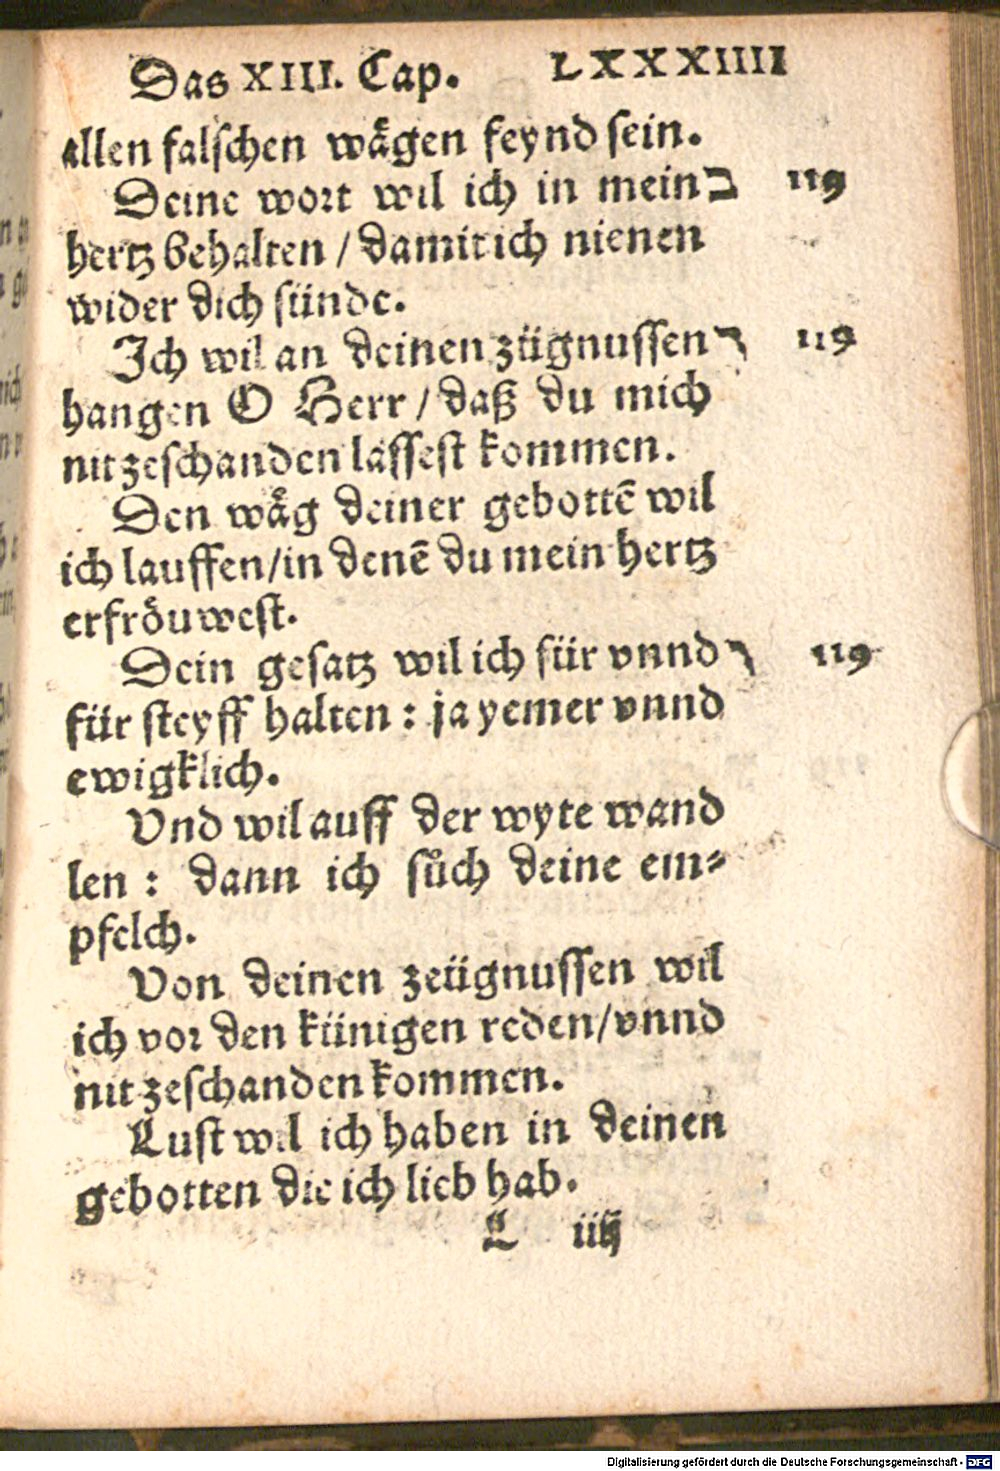 Das XIII. Cap. LXXXIIII
allen falschen waͤgen feynd sein.
Deine wort wil ich in mein ב 119
hertz behalten / damit ich nienen
wider dich sünde.
Ich wil an deinen zügnussen ד 119
hangen O Herr / daß du mich
nit zeschanden lassest kommen.
Den waͤg deiner gebottē wil
ich lauffen/in denē du mein hertz
erfroͤuwest.
Dein gesatz wil ich für vnnd ו 119
für steyff halten : ja yemer vnnd
ewigklich.
Vnd wil auff der wyte wand
len : dann ich suͦch deine em⸗
pfelch.
Von deinen zeügnussen wil
ich vor den künigen reden/vnnd
nit zeschanden kommen.
Lust wil ich haben in deinen
gebotten die ich lieb hab.
L iiij
Digitalisierung gefördert durch die Deutsche Forschungsgemeinschaft - DFG